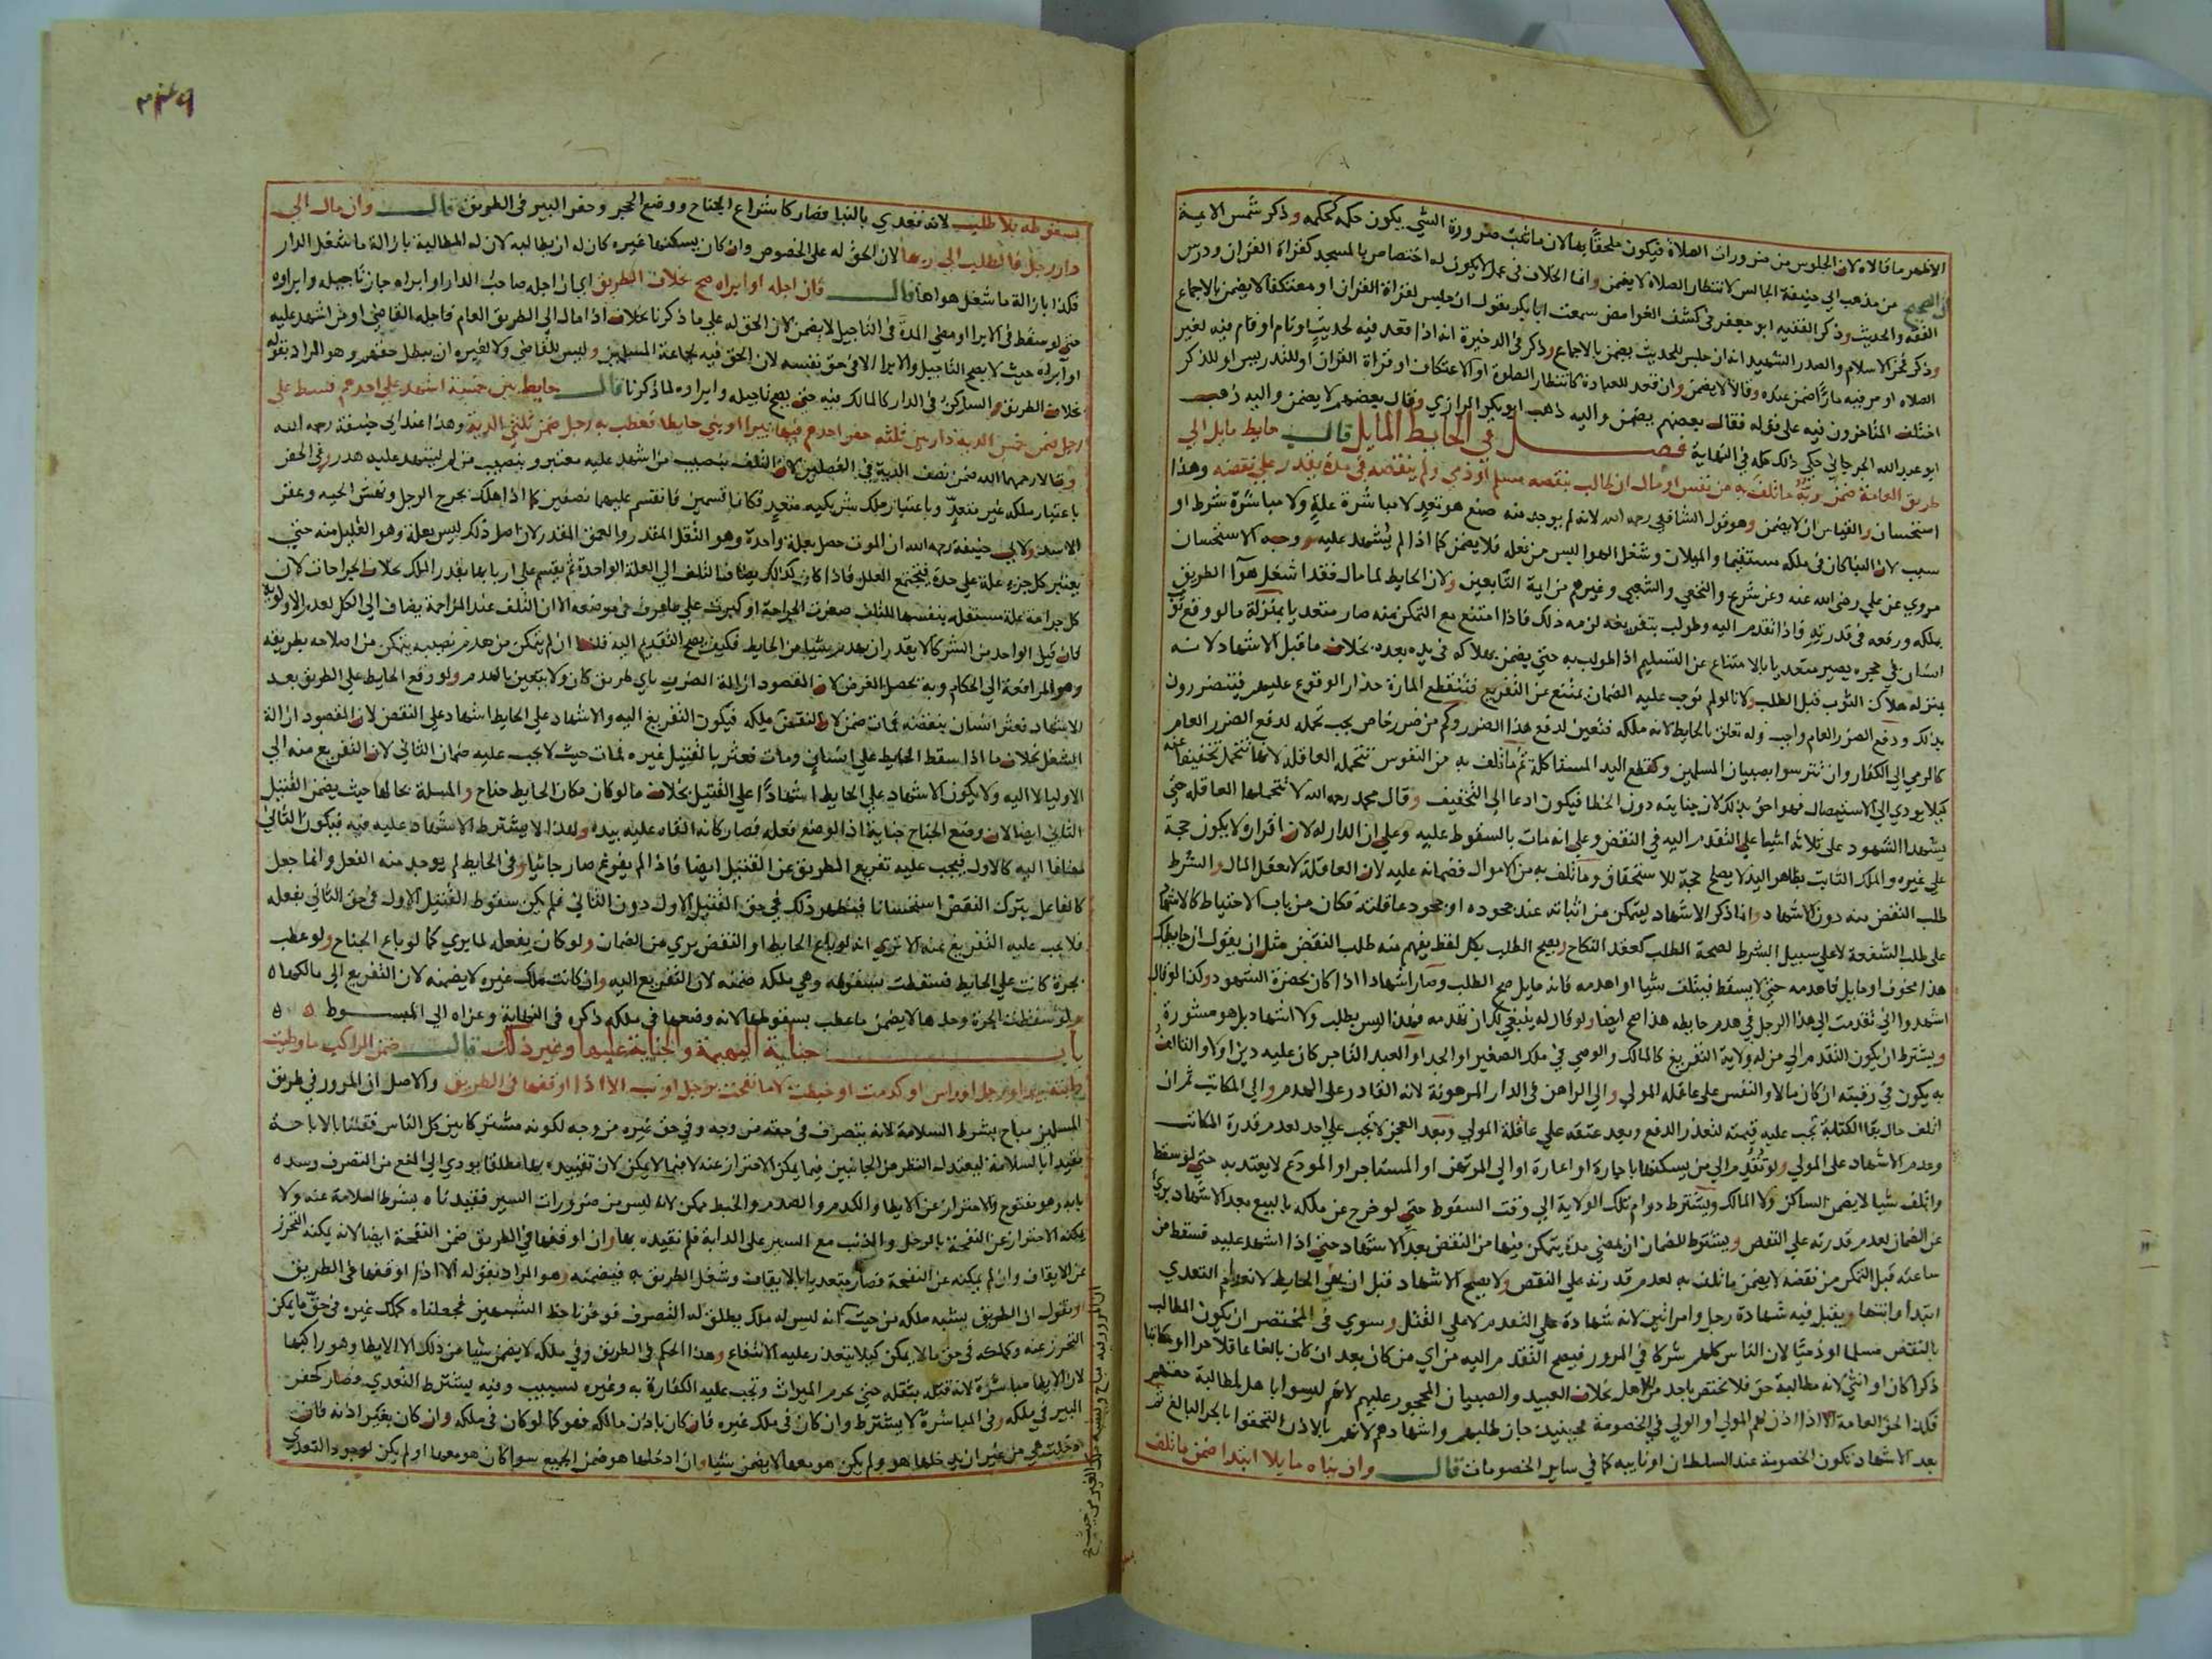 الاظهر ما قالاه لان الجلوس من ضرورات الصلاة فيكون ملحقا بها لان ما ثبت ضرورة الشي يكون حكمه كحكمه وذكر شمس الايمة
ان الصحيح من مذهب ابي حنيفة ان الجالس لانتظار الصلاة لا يضمن وانما الخلاف في عمل لا يكون له اختصاص بالمسجد كقراة القران ودرس
الفقه والحديث وذكر الفقيه ابو جعفر في كشف الغوامض سمعت ابا بكر يقول ان جلس لقراة القران او معتكفا لا يضمن بالاجماع
وذكر فخر الاسلام والصدر الشهيد انه ان جلس للحديث يضمن بالاجماع وذكر في الذخيرة انه اذا قعد فيه لحديث او نام او قام فيه لغير
الصلاه او مر فيه مارا ضمن عنده وقالا لا يضمن وان قعد للعبادة كانتظار الصلوة او الاعتكاف او قراة القران او للتدريس او للذكر
اختلف المتاخرون فيه على قوله فقال بعضهم يضمن واليه ذهب ابو بكر الرازي وقال بعضهم لا يضمن واليه ذهب
ابو عبد الله الجرجاني حكي ذلك كله في النهاية فصل في الحايط المايل قال حايط مايل الي
طريق العامة ضمن ربه ما تلف به من نفس او مال ان طالب بنقضه مسلم او ذمي ولم ينقضه في مدة يقدر علي نقضه وهذا
استحسان والقياس ان لا يضمن وهو قول الشافعي رحمه الله لانه لم يوجد منه صنع هو تعد لا مباشرة علة ولا مباشرة شرط او
سبب لان البنا كان في ملكه مستقيما والميلان وشغل الهوا ليس من فعله فلا يضمن كما اذا لم يشهد عليه ووجه الاستحسان
مروي عن علي رضى الله عنه وعن شريح والنخعي والشعبي وغيرهم من ايمة التابعين ولان الحايط لما مال فقد اشغل هوآ الطريق
بملكه ورفعه في قدرته فاذا تقدم اليه وطولب بتفريغه لزمه ذلك فاذا امتنع مع التمكن منه صار متعديا بمنزلة ما لو وقع ثوب
انسان في حجره يصير متعديا بالامتناع عن التسليم اذا طولب به حتي يضمن بهلاكه في يده بعده بخلاف ما قبل الاشهاد لانه
بمنزله هلاك الثوب قبل الطلب ولانا لو لم نوجب عليه الضمان يمتنع عن التفريغ فتنقطع المارة حذار الوقوع عليهم فيتضررون
بذلك ودفع الضرر العام واجب وله تعلق بالحايط لانه ملكه فتعين لدفع هذا الضرر وكم من ضرر خاص يجب تحمله لدفع الضرر العام
كالرمي الي الكفار وان تترسوا بصبيان المسلمين وكقطع اليد المستاكلة ثم ما تلف به من النفوس تتحمله العاقلة لانها تتحمل تخفيفا عنه
كيلا يودي الي الاستيصال فهو احق بذلك لان جنايته دون الخطا فيكون ادعا الي التخفيف وقال محمد رحمه الله لا تتحملها العاقله حتي
يشهد الشهود على ثلاثه اشيا علي التقدم اليه في النقض وعلي انه مات بالسقوط عليه وعلي ان الدار له لان اقراره لا يكون حجة
علي غيره والملك الثابت بظاهر اليد لا يصلح حجة للاستحقاق وما تلف به من الاموال فضمانه عليه لان العاقلة لا تعقل المال والشرط
طلب النقض منه دون الاشهاد وانما ذكر الاشهاد ليتمكن من اثباته عند جحوده او جحود عاقلته فكان من باب الاحتياط كالاشهاد
على طلب الشفعة لا علي سبيل الشرط لصحة الطلب كعقد النكاح ويصح الطلب بكل لفظ يفهم منه طلب النقض مثل ان يقول ان حايطك
هذا مخوف او مايل فاهدمه حتي لا يسقط فيتلف شيا او اهدمه فانه مايل صح الطلب وصار اشهادا اذا كان بحضرة الشهود وكذا لو قال
اشهدوا اني تقدمت الى هذا الرجل في هدم حايطه هذا صح ايضا ولو قال له ينبغي لك ان تهدمه فهذا ليس بطلب ولا اشهاد بل هو مشورة
ويشترط ان يكون التقدم الي من له ولاية التفريغ كالمالك والوصي في ملك الصغير او الجد او العبد التاجر كان عليه دين او لا والتالف
به يكون في رقبته ان كان مالا والنفس على عاقله المولي والي الراهن في الدار المرهونة لانه القادر على الهدم والي المكاتب ثم ان
اتلف حال بقا الكتابة تجب عليه قيمته لتعذر الدفع وبعد عتقه علي عاقلة المولي وبعد العجز لا يجب علي احد لعدم قدرة المكاتب
وعدم الاشهاد على المولي ولو تقدم الي من يسكنها باجارة او اعارة او الي المرتهن او المستاجر او المودع لا يعتد به حتي لو سقط
واتلف شيا لا يضمن الساكن ولا المالك ويشترط دوام تلك الولاية الي وقت السقوط حتي لو خرج عن ملكه بالبيع بعد الاشهاد بري
عن الضمان لعدم قدرته علي النقض ويشترط للضمان ان يمضي مدة يتمكن فيها من النقض بعد الاشهاد حتي اذا اشهد عليه فسقط من
ساعته قبل التمكن من نقضه لا يضمن ما تلف به لعدم قدرته علي النقض ولا يصح الاشهاد قبل ان يهي الحايط لانعدام التعدي
ابتدا وانتها ويقبل فيه شهادة رجل وامراتين لانه شهادة علي التقدم لا علي القتل وسوي في المختصر ان يكون المطالب
بالنقض مسلما او ذميا لان الناس كلهم شركا في المرور فيصح التقدم اليه من اي من كان بعد ان كان بالغا عاقلا حرا او مكاتبا
ذكرا كان او انثي لانه مطالبة حق فلا تختص باحد من الاهل بخلاف العبيد والصبيان المحجور عليهم لانهم ليسوا باهل لمطالبة حقهم
فكذا لحق العامة الا اذا اذن لهم المولي او الولي في الخصومة فحينيذ جاز طلبهم واشهادهم لانهم بالاذن التحقوا بالحر البالغ ثم
بعد الاشهاد تكون الخصومة عند السلطان او نايبه كما في ساير الخصومات قال وان بناه مايلا ابتدا ضمن ما تلف
بسقوطه بلا طلب لانه تعدي بالبنا فصار كاشراع الجناح ووضع الحجر وحفر البير في الطريق قال وان مال الي
دار رجل فالطلب الى ربها لان الحق له على الخصوص وان كان يسكنها غيره كان له ان يطالبه لان له المطالبة بازالة ما شغل الدار
فكذا بازالة ما شغل هواها قال فان اجله او ابراه صح بخلاف الطريق اي ان اجله صاحب الدار او ابراه جاز تاجيله وابراوه
حتي لو سقط في الابرا او مضي المدة في التاجيل لا يضمن لان الحق له علي ما ذكرنا بخلاف اذا مال الي الطريق العام فاجله القاضي او من اشهد عليه
او ابراه حيث لا يصح التاجيل والابرا لا في حق نفسه لان الحق فيه لجماعة المسلمين وليس للقاضي ولا لغيره ان يبطل حقهم وهو المراد بقوله
بخلاف الطريق والساكن في الدار كالمالك فيه حتي يصح تاجيله وابراوه لما ذكرنا قال حايط بين خمسة اشهد علي احدهم فسقط علي
رجل ضمن خمس الدية دار بين ثلثه حفر احدهم فيها بيرا او بني حايطا فعطب به رجل ضمن ثلثي الدية وهذا عند ابي حنيفة رحمه الله
وقالا رحمهما الله ضمن نصف الدية في الفصلين لان التلف بنصيب من اشهد عليه معتبر وبنصيب من لم يشهد عليه هدر وفي الحفر
باعتبار ملكه غير متعد وباعتبار ملك شريكيه متعد فكانا قسمين فانقسم عليهما نصفين كما اذا هلك بجرح الرجل ونهش الحيه وعقر
الاسد ولابي حنيفة رحمه الله ان الموت حصل بعلة واحدة وهو الثقل المقدر والعمق المقدر لان اصل ذلك ليس بعلة وهو القليل منه حتي
يعتبر كل جزء علة علي حدة فيجتمع العلل فاذا كان كذلك يضاف التلف الي العلة الواحدة ثم يقسم علي اربابها بقدر الملك بخلاف الجراحات لان
كل جراحة علة مستقله بنفسها للتلف صغرت الجراحة او كبرت علي ما عرف في موضعه الا ان التلف عند المزاحمة يضاف الي الكل لعدم الاولوية
فان قيل الواحد من الشركا لا يقدر ان يهدم شيا من الحايط فكيف يصح التقدم اليه قلنا ان لم يتمكن من هدم نصيبه يتمكن من اصلاحه بطريقه
وهو المرافعة الي الحكام وبه يحصل الغرض لان المقصود ازالة الضرر باي طريق كان ولا يتعين بالهدم ولو وقع الحايط علي الطريق بعد
الاشهاد فعثر انسان بنقضه فمات ضمن لان النقض ملكه فيكون التفريغ اليه والاشهاد علي الحايط اشهاد علي النقض لان المقصود ازالة
الشغل بخلاف ما اذا سقط الحايط علي انسان ومات فعثر بالقتيل غيره فمات حيث لا يجب عليه ضمان الثاني لان التفريع منه الي
الاوليا لا اليه ولا يكون الاشهاد علي الحايط اشهادا علي القتيل بخلاف ما لو كان مكان الحايط جناح والمسلة بحالها حيث يضمن القتيل
الثاني ايضا لان وضع الجناح جناية اذا الوضع فعله فصار كانه القاه عليه بيده ولهذا لا يشترط الاشهاد عليه فيه فيكون الثاني
مضافا اليه كالاول فيجب عليه تفريغ الطريق عن القتيل ايضا فاذا لم يفرغ صار جانيا وفي الحايط لم يوجد منه الفعل وانما جعل
كالفاعل بترك النقض استحسانا فيظهر ذلك في حق القتيل الاول دون الثاني فلم يكن سقوط القتيل الاول في حق الثاني بفعله
فلا يجب عليه التفريغ عنه الا تري انه لو باع الحايط او النقض بري من الضمان ولو كان بفعله لما بري كما لو باع الجناح ولو عطب
بجرة كانت علي الحايط فسقطت بسقوطه وهي ملكه ضمنه لان التفريع اليه وان كانت ملك غيره لا يضمنه لان التفريع الي مالكها ه
ولو سقطت الجرة وحدها لا يضمن ما عطب بسقوطها لانه وضعها في ملكه ذكره في النهاية وعزاه الي المبسوط ه ه
باب جناية البهيمة والجناية عليها وغير ذلك قال ضمن الراكب ما وطيت
دابته بيد او رجل او راس او كدمت او خبطت لا ما نفحت برجل او ذنب الا اذا اوقفها في الطريق والاصل ان المرور في طريق
المسلمين مباح بشرط السلامة لانه يتصرف في حقه من وجه وفي حق غيره من وجه لكونه مشتركا بين كل الناس فقلنا بالاباحة
مقيدا بالسلامة ليعتدل النظر من الجانبين فيما يمكن الاحتراز عنه لا فيما لا يمكن لان تقييده بها مطلقا يودي الي المنع من التصرف وسده
بابه وهو مفتوح والاحتراز عن الايطا والكدم والصدم والخبط ممكن لانه ليس من ضرورات السير فقيدناه بشرط السلامة عنه ولا
يمكنه الاحتراز عن النفحة بالرجل والذنب مع السير على الدابة فلم نقيده بها وان اوقفها في الطريق ضمن النفحة ايضا لانه يمكنه التحرز
عن الايقاف وان لم يمكنه عن النفحة فصار متعديا بالايقاف وشغل الطريق به فيضمنه وهو المراد بقوله الا اذا اوقفها في الطريق
او نقول ان الطريق يشبه ملكه من حيث انه ليس له ملك يطلق له التصرف فوفرنا حظ الشبهين فجعلناه كملك غيره في حق ما يمكن
التحرز عنه وكملكه في حق ما لا يمكن كيلا يتعذر عليه الانتفاع وهذا الحكم في الطريق وفي ملكه لا يضمن شيا من ذلك الا الايطا وهو راكبها
لان الايطا مباشرة لانه قتله بثقله حتي يحرم الميراث وتجب عليه الكفارة به وغيره تسبيب وفيه يشترط التعدي وصار كحفر
البير في ملكه وفي المباشرة لا يشترط وان كان في ملك غيره فان كان باذن مالكه فهو كما لو كان في ملكه وان كان بغير اذنه فان
دخلت هي من غير ان يدخلها هو ولم يكن هو معها لا يضمن شيا وان ادخلها هو ضمن الجميع سوا كان هو معها او لم يكن لوجود التعدي